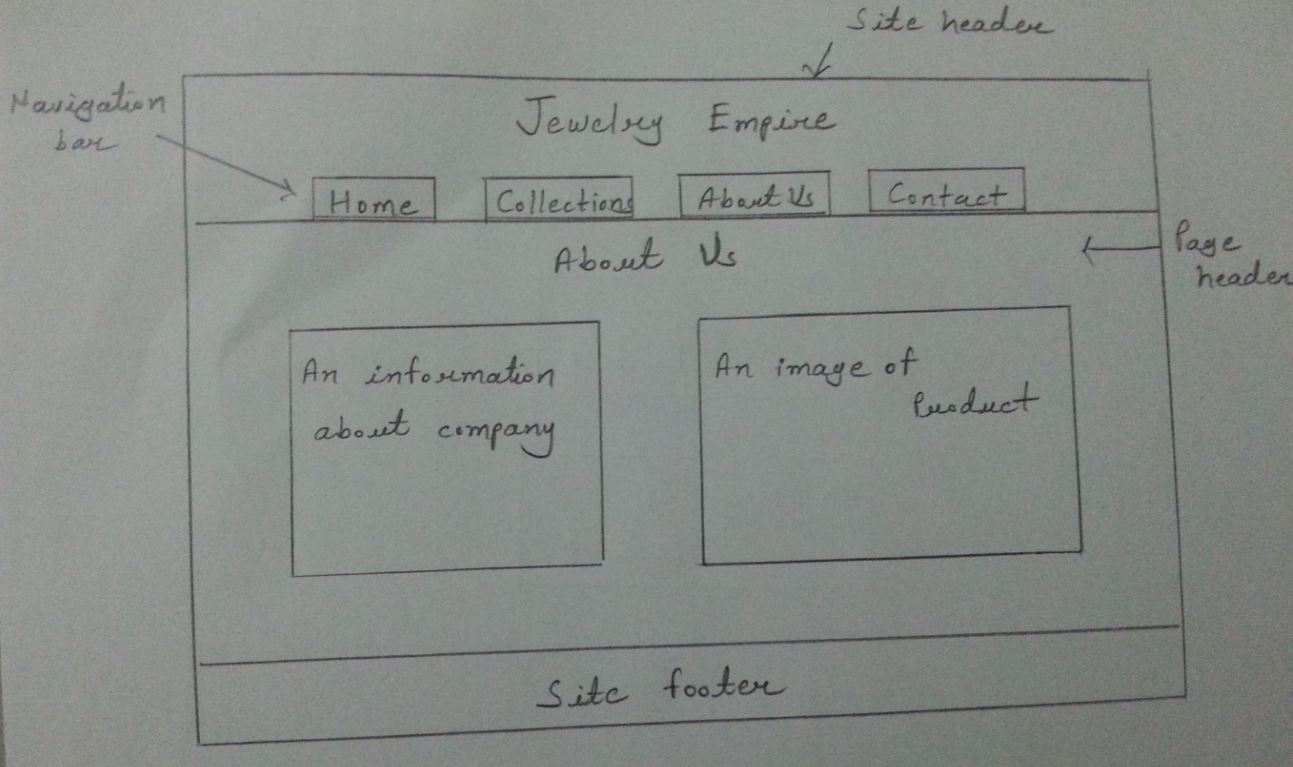 Site header
Navigation
bar
Jewelry Empire
Home Collections About Us Contact
About Us
Page
header
An information
about company
An image of
Product
Site footer